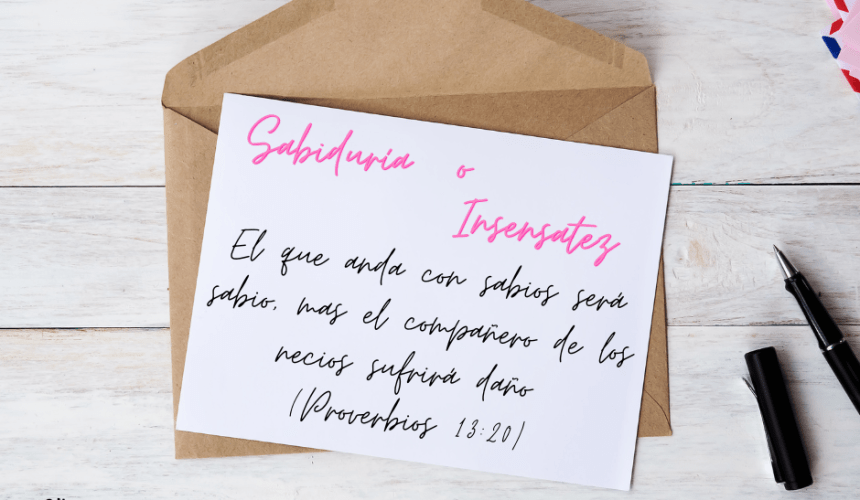 Sabiduría o
Insensatez
El que anda con sabios será
sabio, mas el compañero de los
necios sufrirá daño
(Proverbios 13:20)